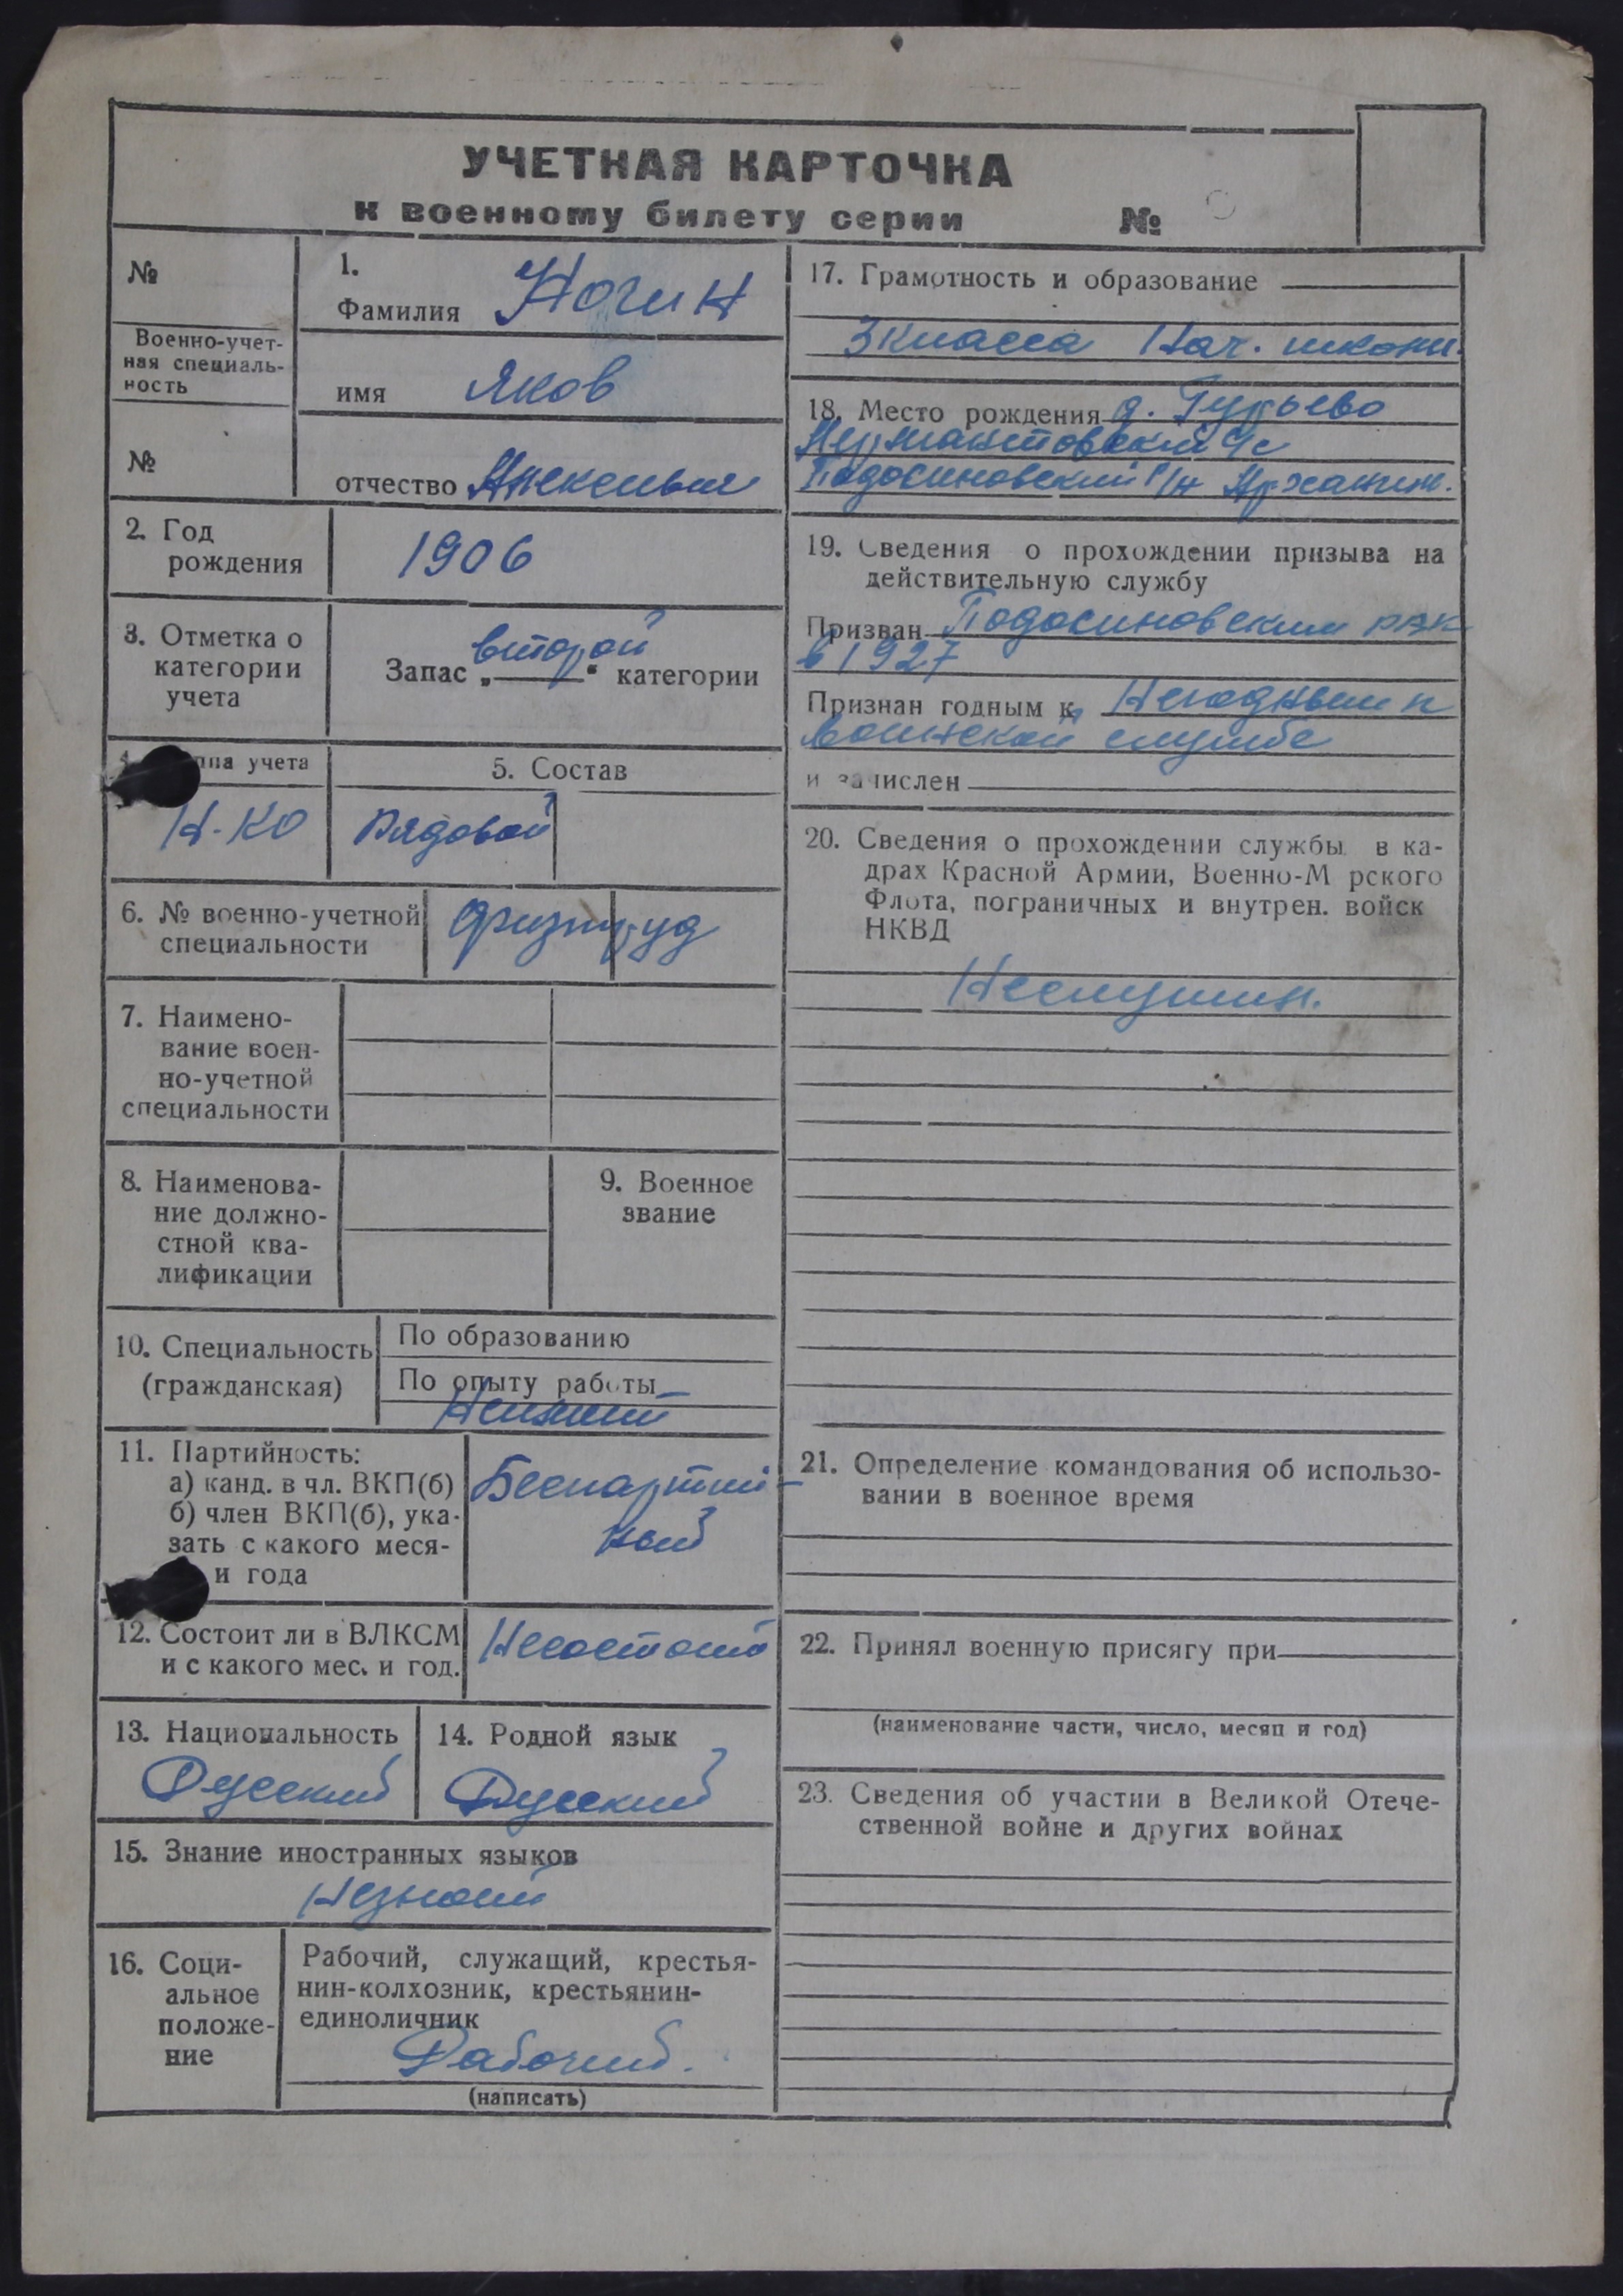 УЧЕТНАЯ КАРТОЧКА
к военному билету серии №
№
Военно-учет-
ная специаль-
ность
№
1.
Фамилия Ногин
имя Яков
отчество
2. Год
рождения
1906
3. Отметка о
категории
учета
Запас „второй“ категории
ппа учета
Н-КО
5. Состав
Рядовой
6. № военно-учетной
специальности
физтруд
7. Наимено-
вание воен-
но-учетной
специальности
8. Наименова-
ние должно-
стной ква-
лификации
9. Военное
звание
10. Специальность
(гражданская)
По образованию
По опыту работы
11. Партийность:
а) канд. в чл. ВКП(б)
б) член ВКП(б), ука-
зать с какого меся-
и года
Беспартий-
ный
12. Состоит ли в ВЛКСМ
и с какого мес. и год.
Несостоит
13. Национальность
Русский
14. Родной язык
Русский
15. Знание иностранных языков
Незнает
16. Соци-
альное
положе-
ние
Рабочий, служащий, крестья-
нин-колхозник, крестьянин-
единоличник
Рабочий.
(написать)
17. Грамотность и образование
3 класса Нач. школы.
18. Место рождения д. Гурьево
с/с
Подосиновский р/н Архангел.
19. Сведения о прохождении призыва на
действительную службу
Призван Подосиновским РВК
в 1927
Признан годным к Негодным к
воинской службе
и зачислен
20. Сведения о прохождении службы в ка-
драх Красной Армии, Военно-М рского
Флота, пограничных и внутрен. войск
НКВД
Неслужил.
21. Определение командования об использо-
вании в военное время
22. Принял военную присягу при
(наименование части, число, месяц и год)
23. Сведения об участии в Великой Отече-
ственной войне и других войнах